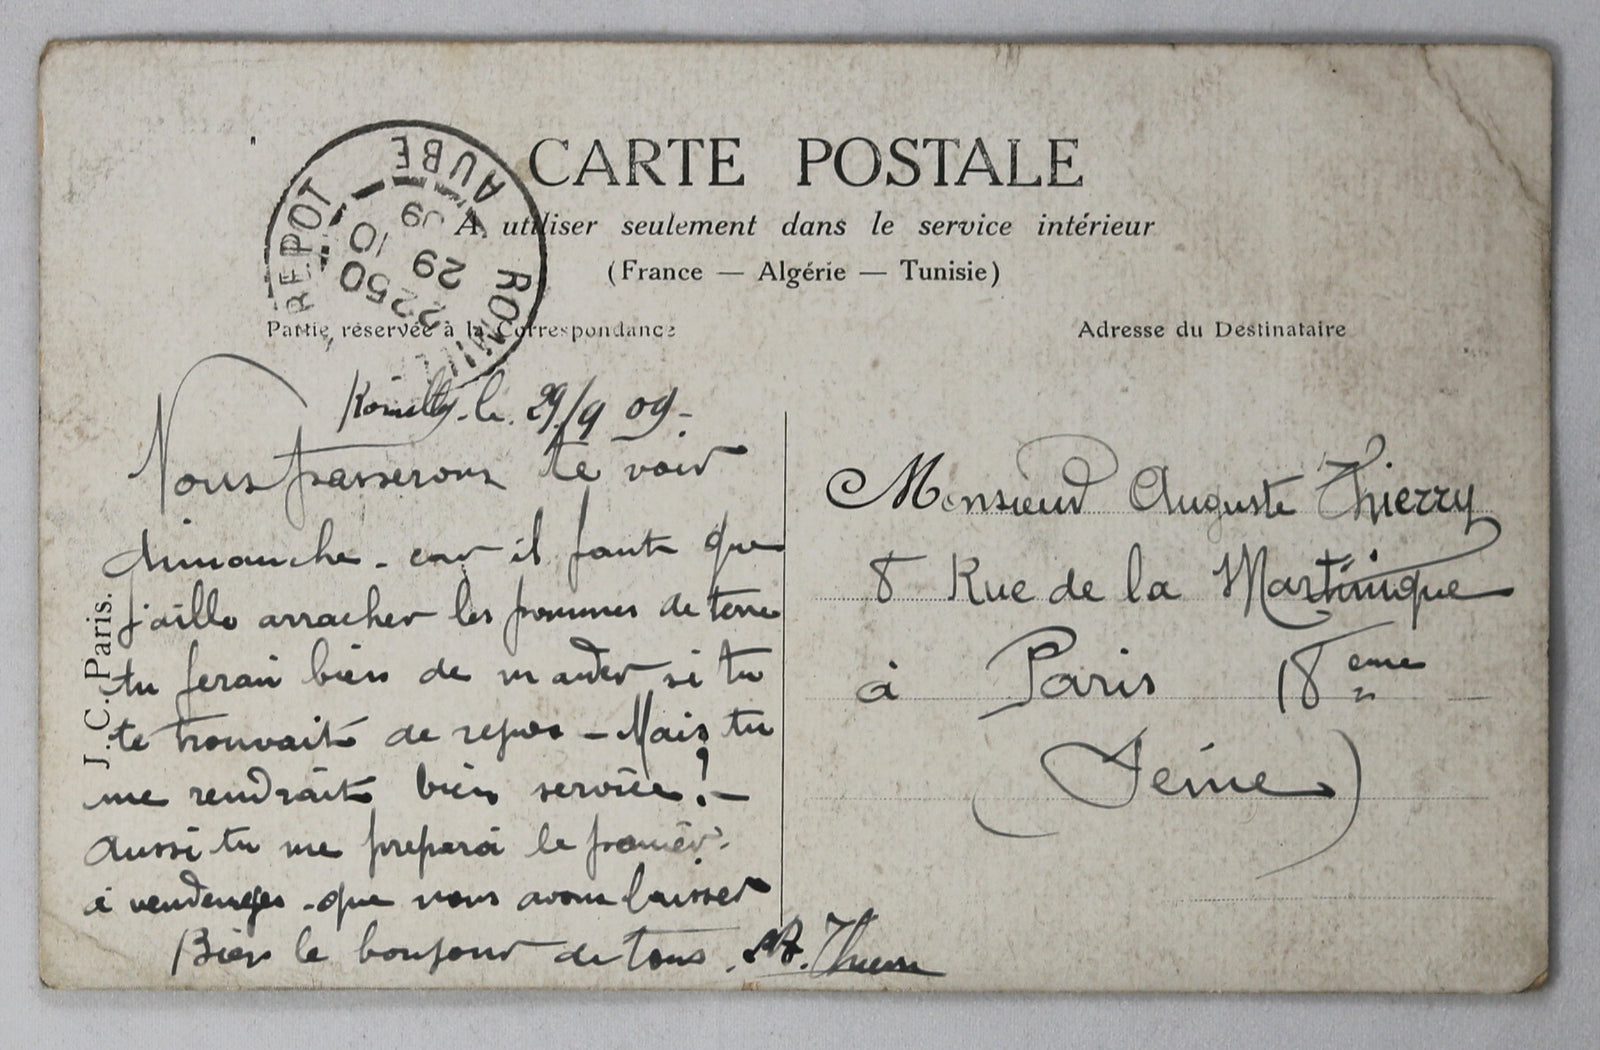 CARTE POSTALE
A utiliser seulement dans le service intérieur
(France — Algérie — Tunisie)
Partie réservée à la Correspondance
Adresse du Destinataire
REPOT
AUBE
ROMILLY
2250
29
10
09
J. C. Paris.
Romilly. le. 29/9 09-
Nous passerons te voir
dimanche. car il faut que
j'aille arracher les pommes de terre
tu ferai bien de mander si tu
te trouvait de repos – Mais tu
me rendrait bien service! –
Aussi tu me preparai le panier
à vendenges - que nous avons laisser
Bien le bonjour de tous. A. Thierry
Monsieur Auguste Thierry
8 Rue de la Martinique
à Paris 18eme
(Seine)